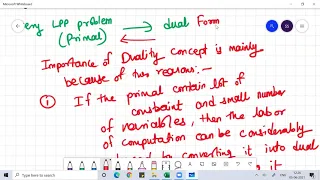 Microsoft Whiteboard
LPP problem dual Form
(Primal)
Importance of Duality concept is mainly
because of two reasons. —
(i) If the primal contain lot of
constraint and small number
of variables, then the labor
of computation can be considerably
converting it into dual
it